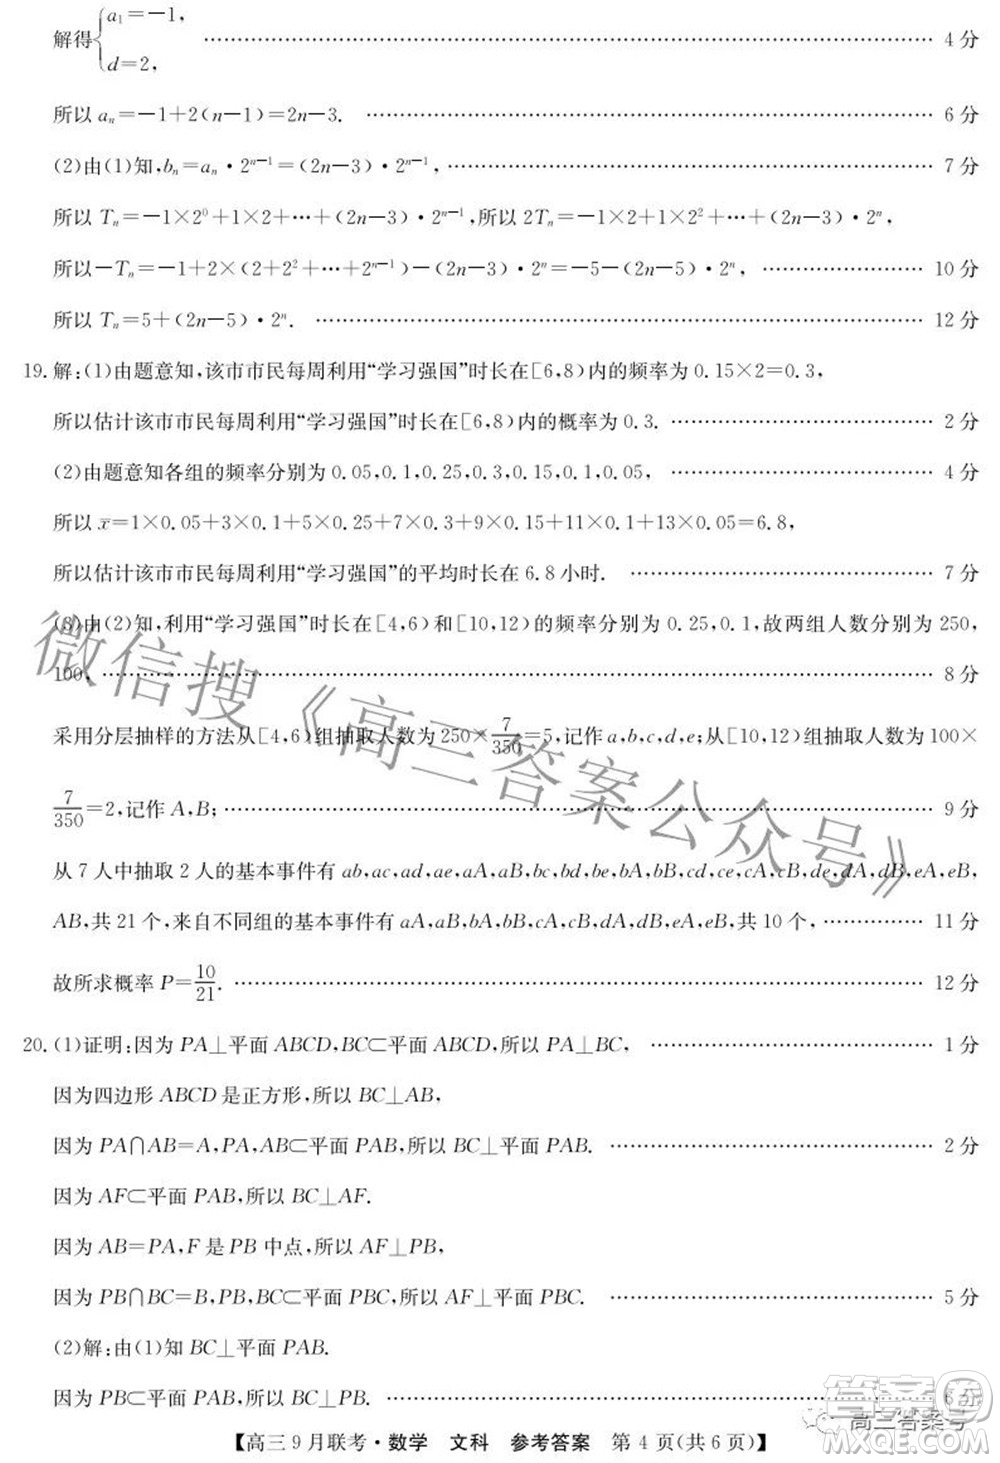 解得{a₁=-1, d=2, …… 4 分
所以 aₙ=-1+2(n-1)=2n-3. …… 6 分
(2)由(1)知,bₙ=aₙ·2ⁿ⁻¹=(2n-3)·2ⁿ⁻¹, …… 7 分
所以 Tₙ=-1×2⁰+1×2+…+(2n-3)·2ⁿ⁻¹,所以 2Tₙ=-1×2+1×2²+…+(2n-3)·2ⁿ,
所以-Tₙ=-1+2×(2+2²+…+2ⁿ⁻¹)-(2n-3)·2ⁿ=-5-(2n-5)·2ⁿ, …… 10 分
所以 Tₙ=5+(2n-5)·2ⁿ. …… 12 分
19.解:(1)由题意知,该市市民每周利用“学习强国”时长在[6,8)内的频率为 0.15×2=0.3,
所以估计该市市民每周利用“学习强国”时长在[6,8)内的概率为 0.3. …… 2 分
(2)由题意知各组的频率分别为 0.05,0.1,0.25,0.3,0.15,0.1,0.05, …… 4 分
所以 x̄=1×0.05+3×0.1+5×0.25+7×0.3+9×0.15+11×0.1+13×0.05=6.8,
所以估计该市市民每周利用“学习强国”的平均时长在 6.8 小时. …… 7 分
(3)由(2)知,利用“学习强国”时长在[4,6)和[10,12)的频率分别为 0.25,0.1,故两组人数分别为 250,
100. …… 8 分
采用分层抽样的方法从[4,6)组抽取人数为 250×7/350=5,记作 a,b,c,d,e;从[10,12)组抽取人数为 100×
7/350=2,记作 A,B; …… 9 分
从 7 人中抽取 2 人的基本事件有 ab,ac,ad,ae,aA,aB,bc,bd,be,bA,bB,cd,ce,cA,cB,de,dA,dB,eA,eB,
AB,共 21 个,来自不同组的基本事件有 aA,aB,bA,bB,cA,cB,dA,dB,eA,eB,共 10 个, …… 11 分
故所求概率 P=10/21. …… 12 分
20.(1)证明:因为 PA⊥平面 ABCD,BC⊂平面 ABCD,所以 PA⊥BC, …… 1 分
因为四边形 ABCD 是正方形,所以 BC⊥AB,
因为 PA∩AB=A,PA,AB⊂平面 PAB,所以 BC⊥平面 PAB. …… 2 分
因为 AF⊂平面 PAB,所以 BC⊥AF.
因为 AB=PA,F 是 PB 中点,所以 AF⊥PB,
因为 PB∩BC=B,PB,BC⊂平面 PBC,所以 AF⊥平面 PBC. …… 5 分
(2)解:由(1)知 BC⊥平面 PAB.
因为 PB⊂平面 PAB,所以 BC⊥PB. …… 6 分
【高三 9 月联考·数学 文科 参考答案 第 4 页(共 6 页)】
微信搜《高三答案公众号》
高三答案号
答案圈